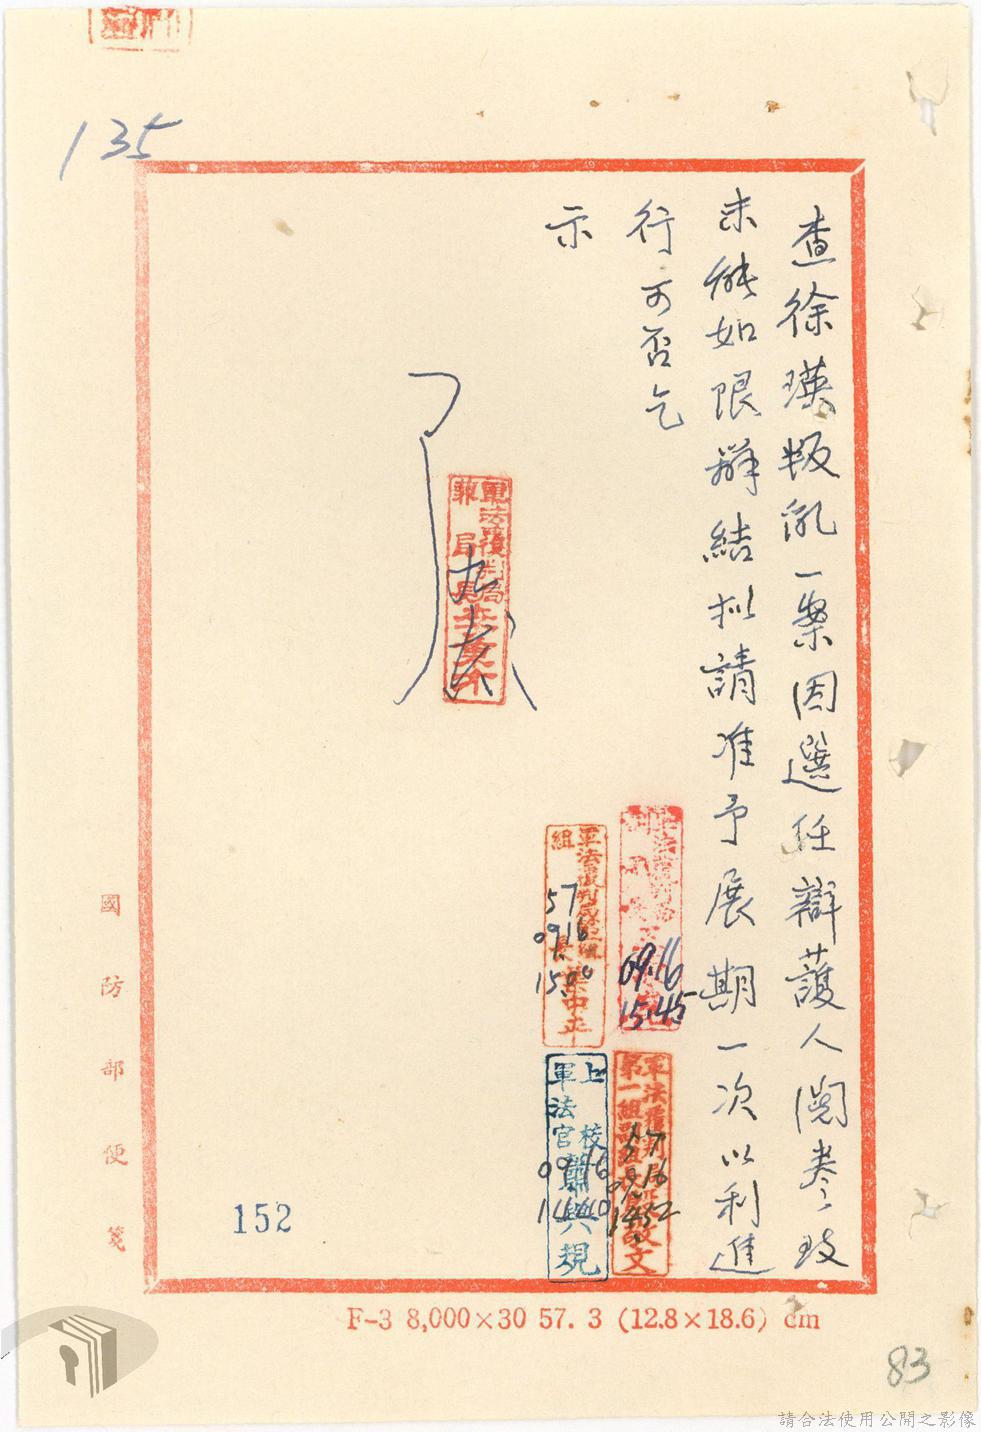 135
查徐瑛叛亂一案因選任辯護人閱卷致
未能如限辦結擬請准予展期一次以利進
行可否乞
示
軍法覆判局
09.16
15.45
軍法覆判局
第一組
57
09.16
1452
組長葉中正
57
09.16
15.00
上校
軍法官蕭與規
09.16
1440
152
國防部便箋
F-3 8,000×30 57. 3 (12.8×18.6) cm
83
請合法使用公開之影像